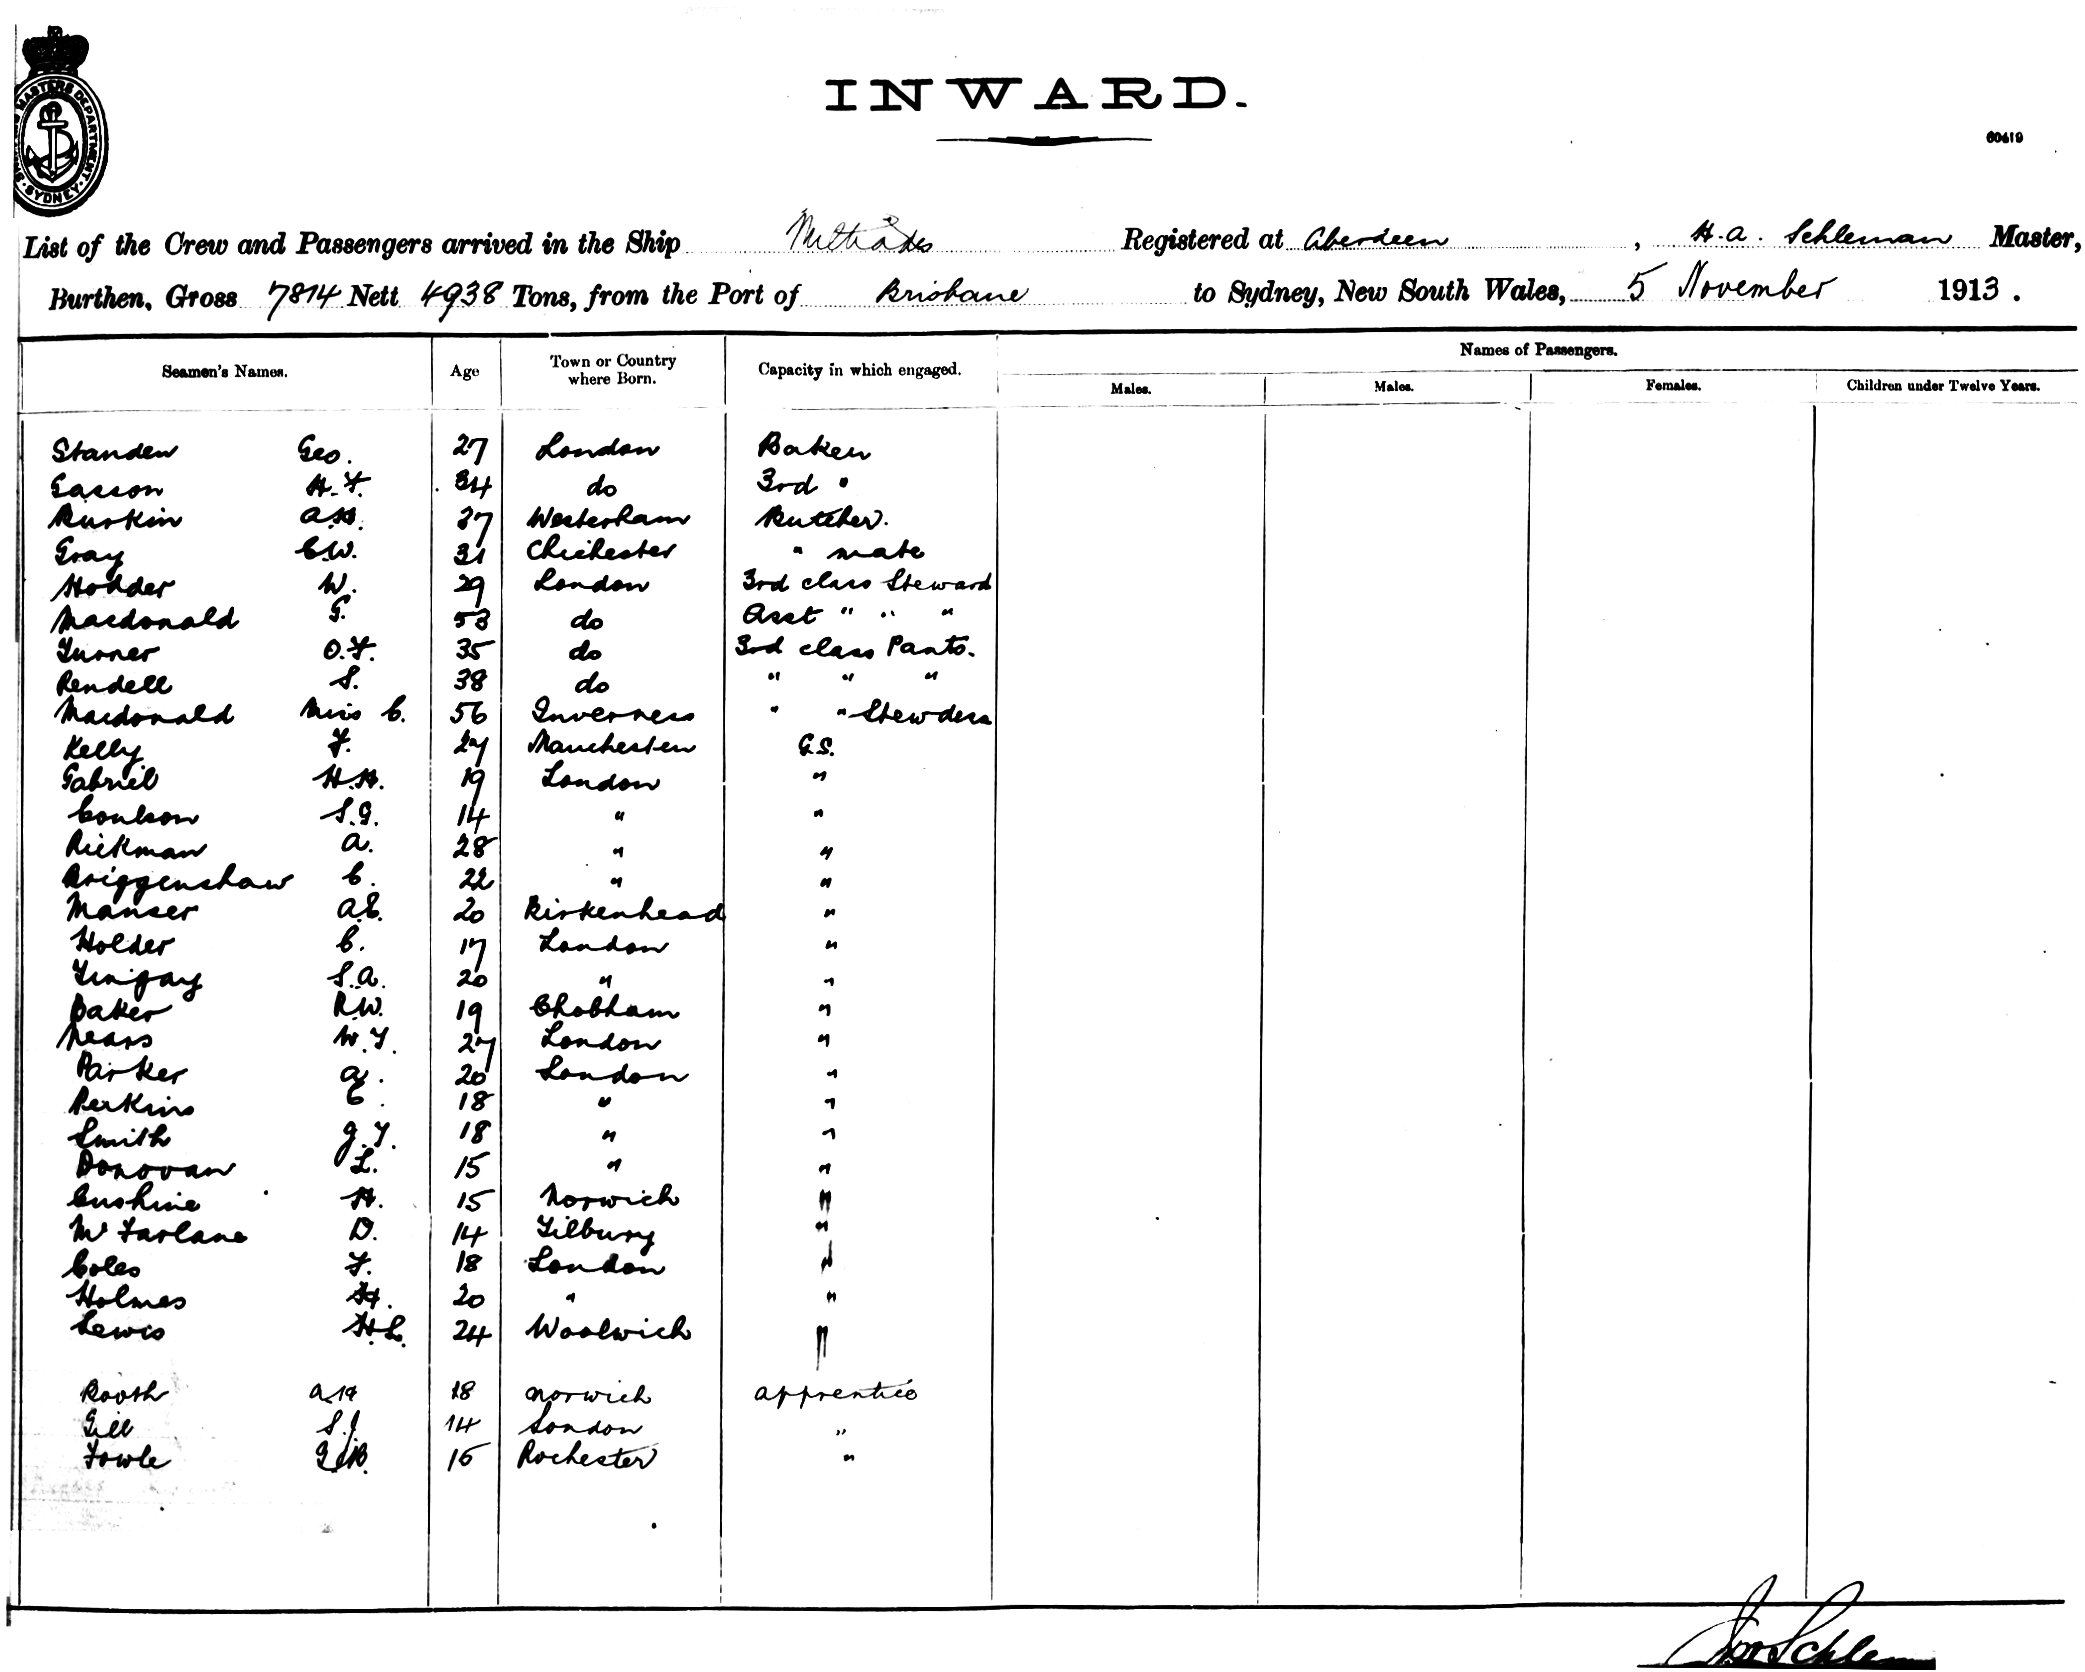 INWARD.
60419
SHIPPING MASTERS DEPARTMENT · SYDNEY ·
List of the Crew and Passengers arrived in the Ship Miltiades Registered at Aberdeen, H. A. Schleman Master,
Burthen, Gross 7814 Nett 4938 Tons, from the Port of Brisbane to Sydney, New South Wales, 5 November 1913.
Seamen's Names. Age Town or Country where Born. Capacity in which engaged. Names of Passengers.
Males. Males. Females. Children under Twelve Years.
Standen Geo. 27 London Baker
Gasson H. F. 34 do 3rd "
Ruskin A.H. 37 Westerham Butcher.
Gray C.W. 31 Chichester " mate
Hodder W. 29 London 3rd class Steward
Macdonald G. 53 do Asst " " "
Turner O.F. 35 do 3rd class Pants.
Rendell S. 38 do " " "
Macdonald Miss C. 56 Inverness " " Stewdess
Kelly F. 27 Manchester G.S.
Gabriel H.H. 19 London "
Coulson S.G. 14 " "
Rickman A. 28 " "
Briggenshaw C. 22 " "
Manser A.E. 20 Birkenhead "
Holder C. 17 London "
Tingay S.A. 20 " "
Baker R.W. 19 Chobham "
Mears W.T. 27 London "
Parker A. 20 London "
Perkins C. 18 " "
Smith G.T. 18 " "
Donovan L. 15 " "
Cushine H. 15 Norwich "
McFarlane D. 14 Tilbury "
Coles F. 18 London "
Holmes H. 20 " "
Lewis H.L. 24 Woolwich "
Booth A H 18 Norwich apprentice
Gill S.J. 14 London "
Fowle G.B. 15 Rochester "
Schleman